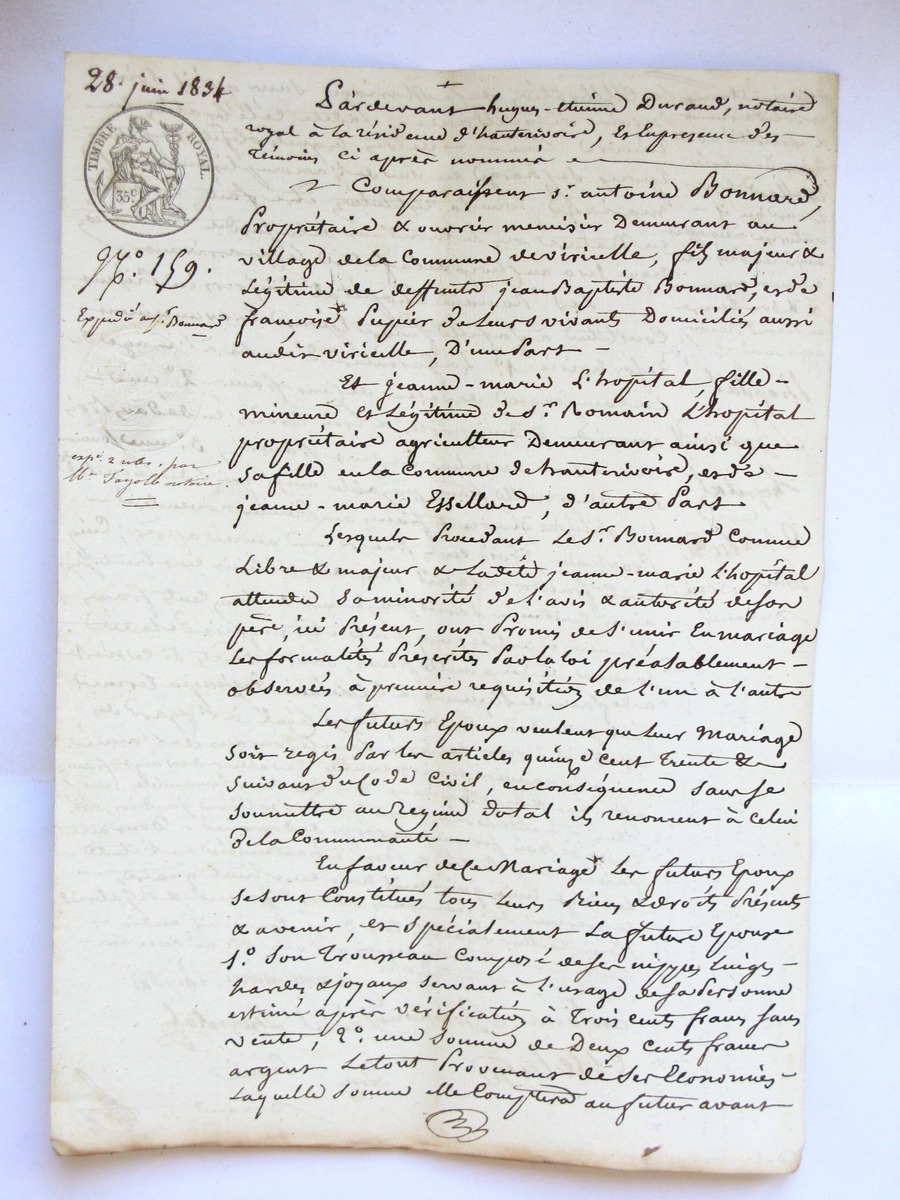 28. juin 1834
TIMBRE ROYAL.
35 c
N.o 159.
Expédié au s.r Bonnard
exp.e 2 roles, par
M.e Fayolle notaire.
Pardevant hugues-etienne Durand, notaire
royal à la résidence d'hauterivoire, et En presence des
témoins ci après nommés
Comparaissent s.r antoine Bonnard,
Propriétaire & ouvrier menuisier Demeurant au
village de la Commune de viricelle, fils majeur &
Légitime de deffunts jean Baptiste Bonnard, et de
françoise Pupier de Leurs vivants Domiciliés aussi
audit viricelle, D'une Part –
Et jeanne-marie L'hopital, fille –
mineure et Légitime de s.r Romain L'hopital
propriétaire agriculteur Demeurant ainsi que
sa fille en la Commune de hauterivoire, et de –
jeanne-marie Essellard, d'autre Part
Lesquels Procédant Le S.r Bonnard Comme
Libre & majeur & La dite jeanne-marie L'hopital
attendu sa minorité de l'avis & autorité de son
père, ici Présent, ont Promis de s'unir En mariage
Les formalités Préscrites Par la loi préalablement –
observées à première requisition de l'un à l'autre
Les futurs Epoux veulent que Leur Mariage
soit regis Par les articles quinze cent Trente &
suivants du Code Civil, en conséquence sans se
soumettre au Regime dotal ils renoncent à Celui
De la Communauté –
En faveur de Ce Mariage Les futurs Epoux
se sont Constitués tous Leurs Biens & droits Présents
& avenir, et spécialement La future Epouse
1.o Son Trousseau Composé de ses nippes Linges –
hardes & joyaux servant à l'usage de sa Personne
estimé après vérification à Trois cents francs sans
vente, 2.o une somme de Deux Cents francs
argent Le tout Provenant de ses Economies –
Laquelle somme elle Comptera au futur avant